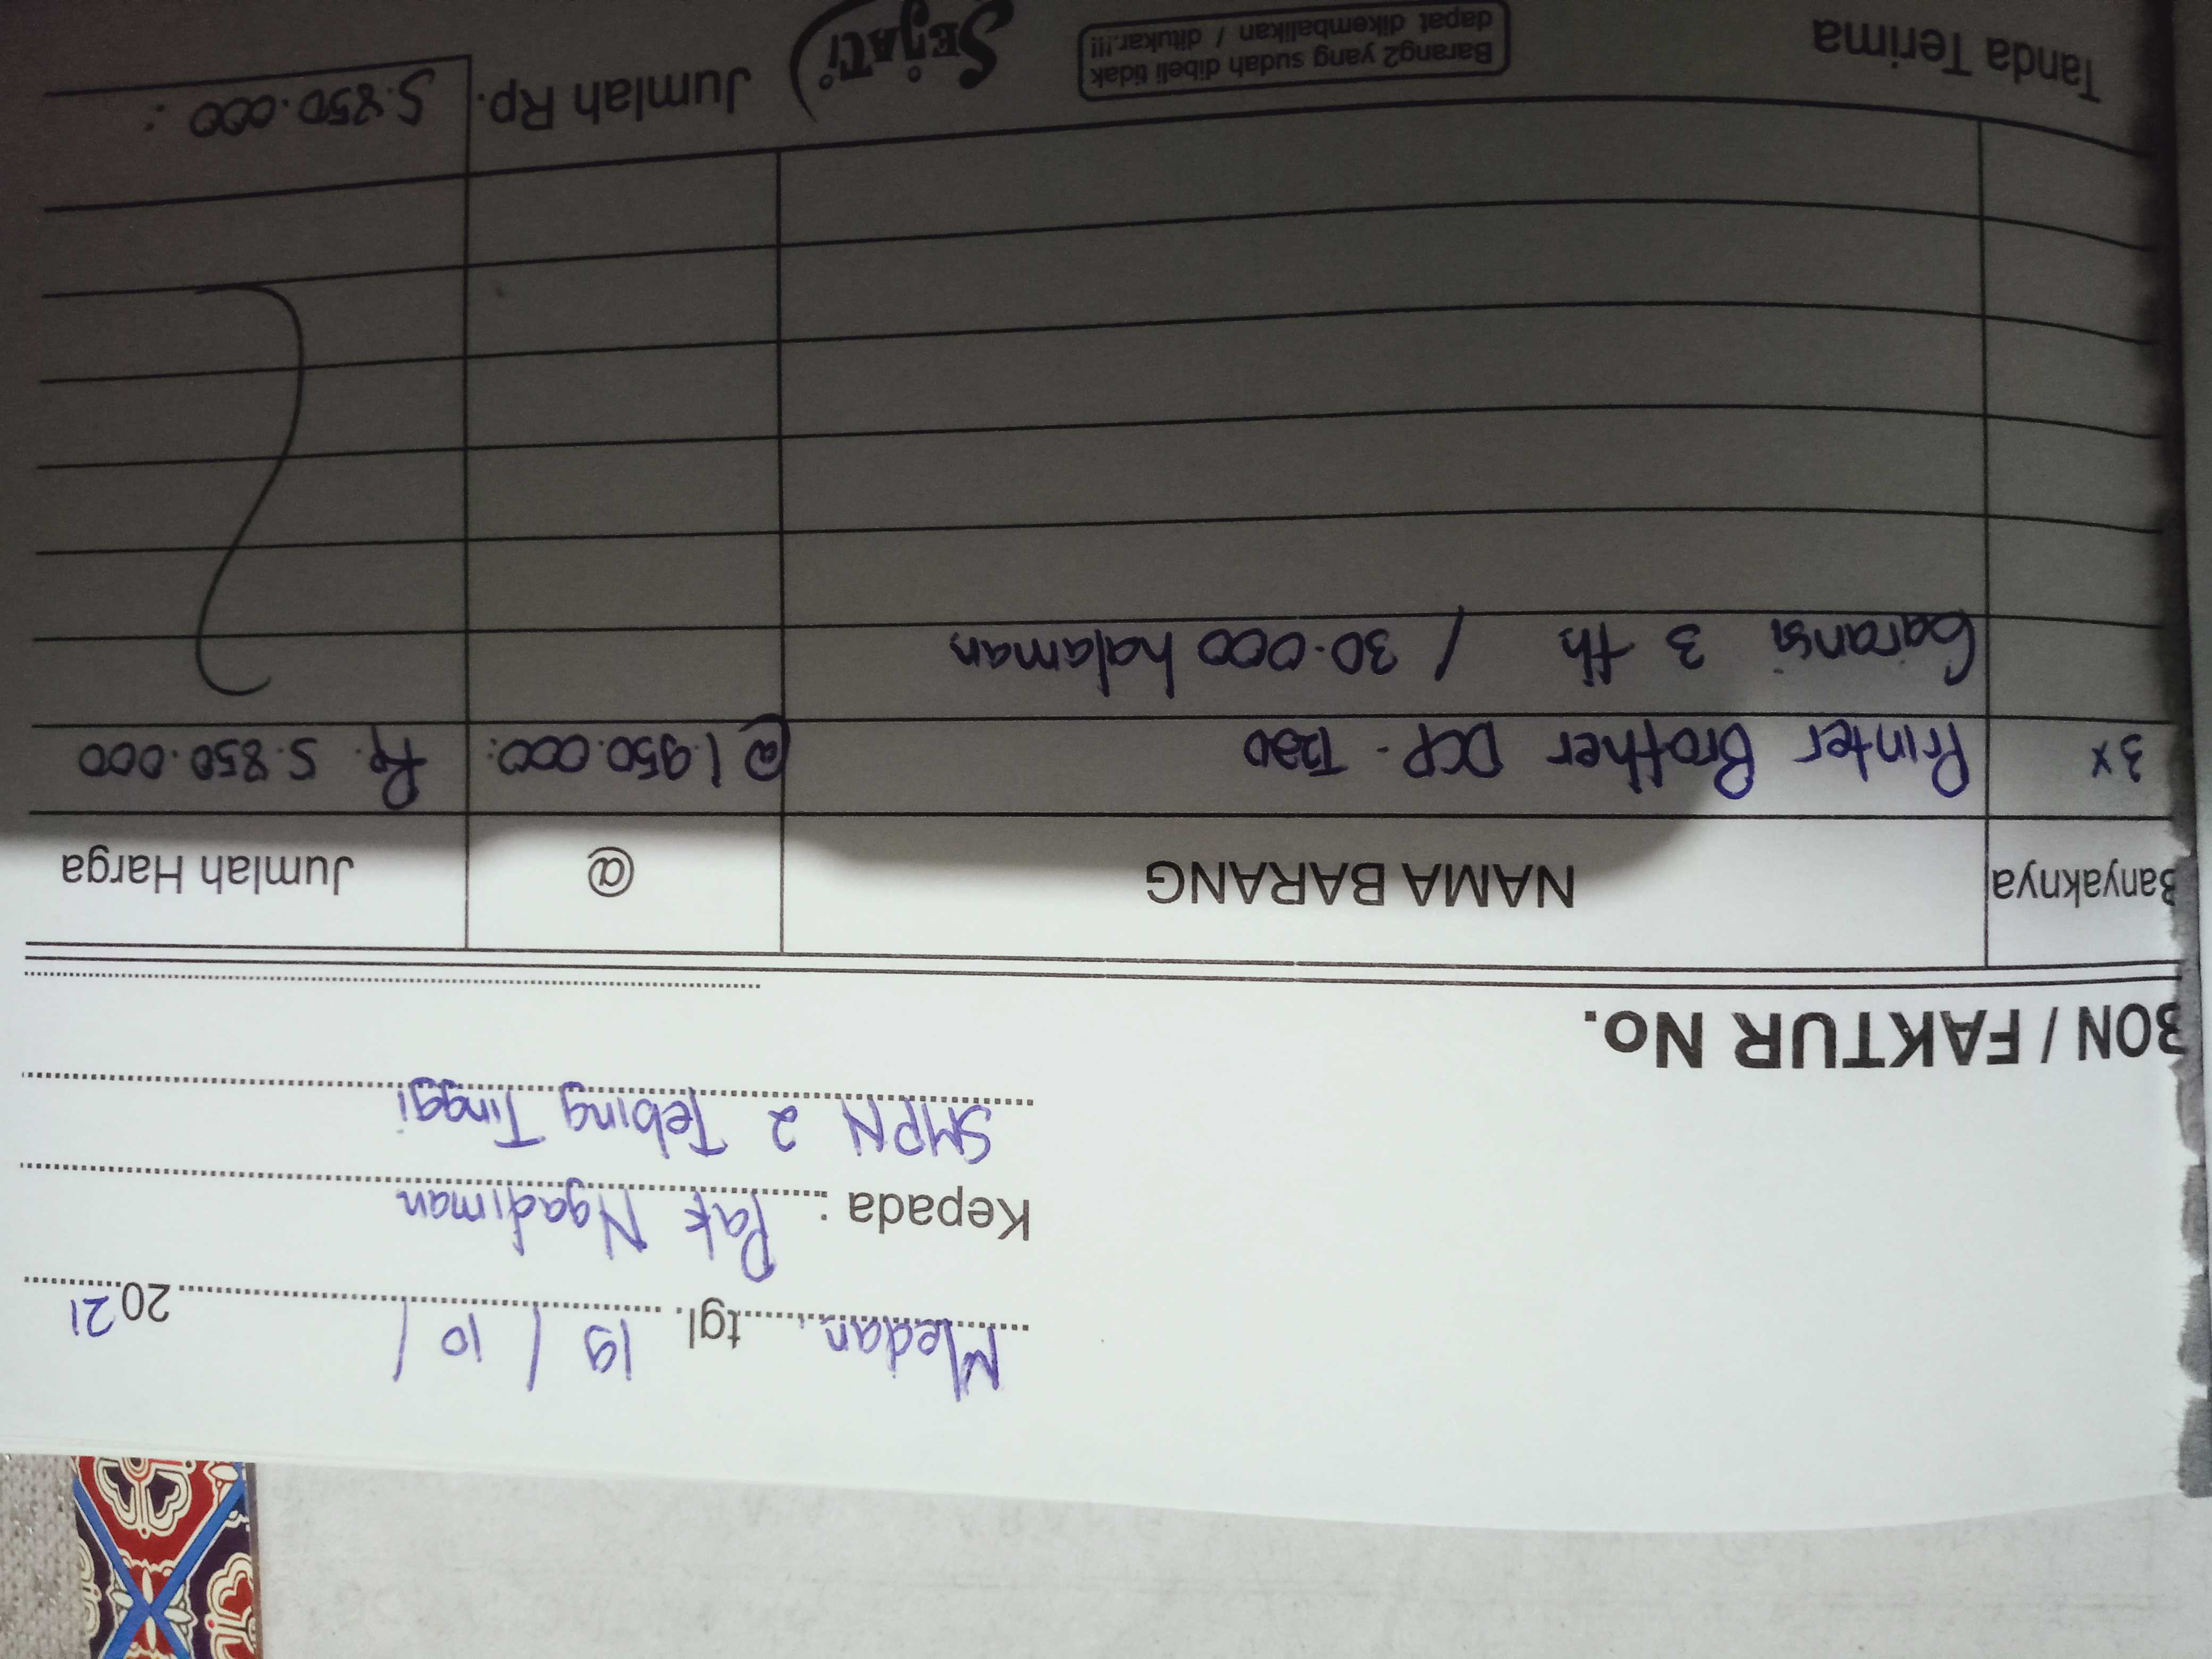 Medan, tgl. 19 / 10 / 2021
Kepada : Pak Ngadiman
SMPN 2 Tebing Tinggi
BON / FAKTUR No.
Banyaknya NAMA BARANG @ Jumlah Harga
3x Printer Brother DCP-T220 @1.950.000: Rp. 5.850.000
Garansi 3 th / 30.000 halaman
Tanda Terima
Barang2 yang sudah dibeli tidak
dapat dikembalikan / ditukar.!!!
SEJATI
Jumlah Rp. 5.850.000: